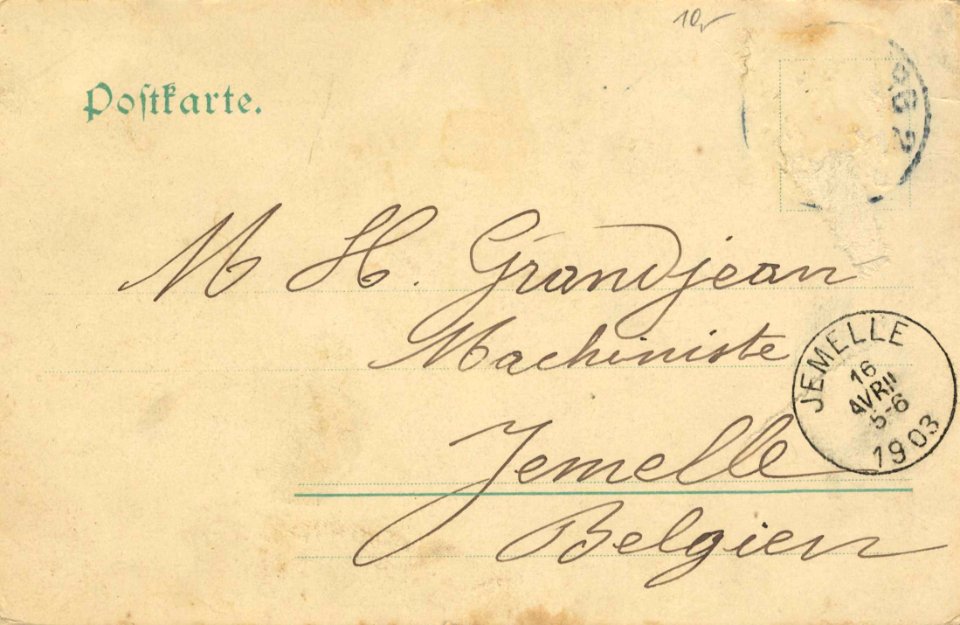 10,-
Postkarte.
RG 2
M H. Grandjean
Machiniste
Jemelle
Belgien
JEMELLE
16
AVRIL
5-6
1903